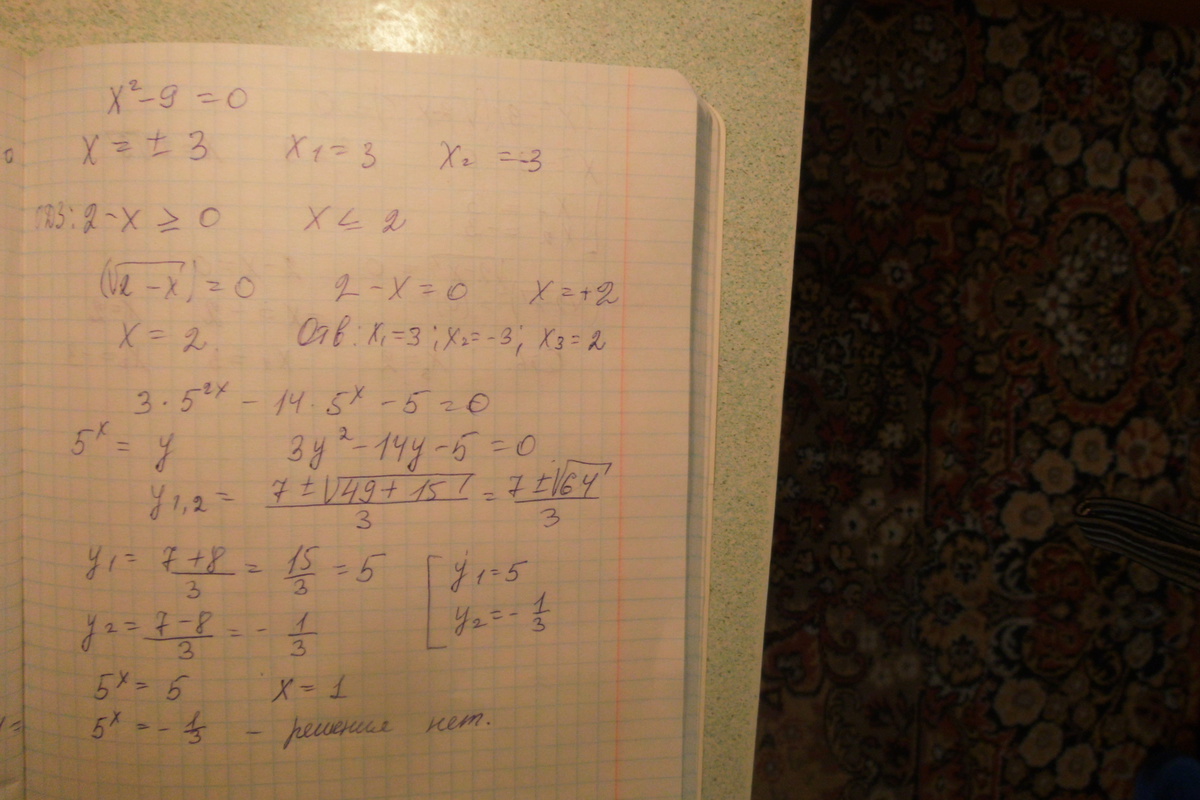 x² - 9 = 0
x = ± 3 x₁ = 3 x₂ = -3
ОДЗ: 2 - x ≥ 0 x ≤ 2
(√2 - x) = 0 2 - x = 0 x = +2
x = 2 Отв: x₁ = 3; x₂ = -3; x₃ = 2
3 · 5²ˣ - 14 · 5ˣ - 5 = 0
5ˣ = y 3y² - 14y - 5 = 0
y₁,₂ = (7 ± √(49 + 15))/3 = (7 ± √64)/3
y₁ = (7 + 8)/3 = 15/3 = 5 [ y₁ = 5
y₂ = (7 - 8)/3 = - 1/3 y₂ = - 1/3
5ˣ = 5 x = 1
5ˣ = - 1/3 - решения нет.